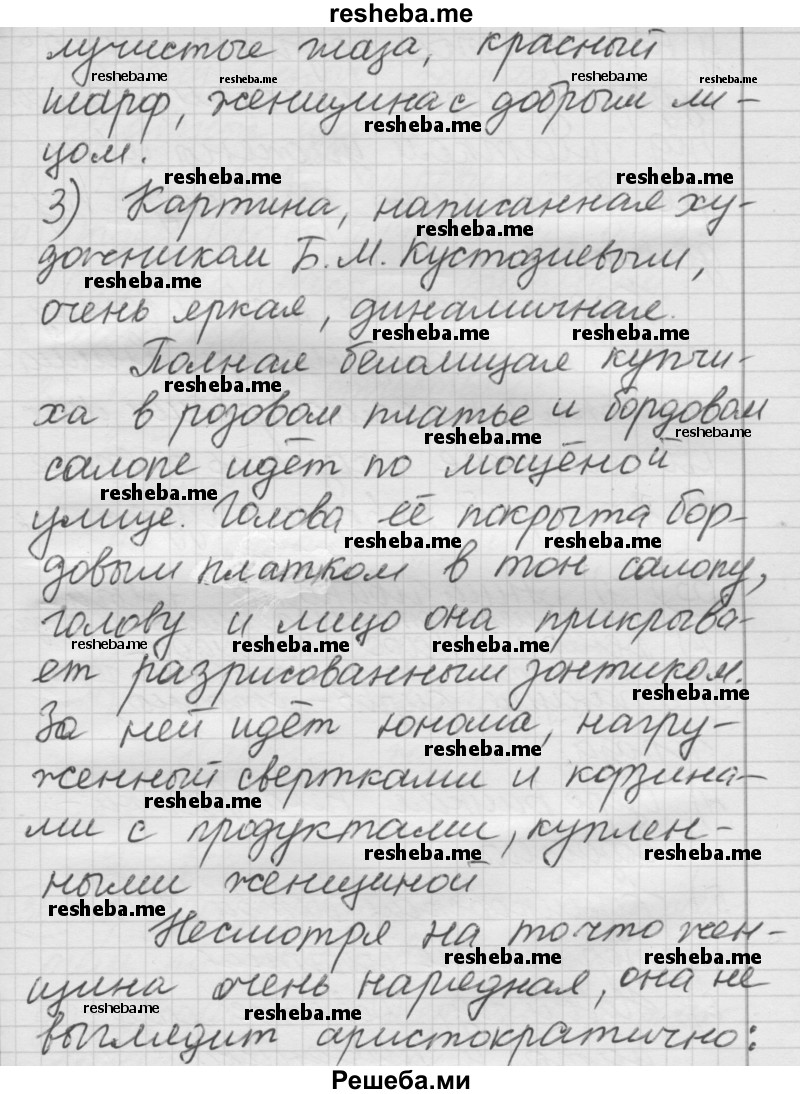 resheba.me
лучистые глаза, красный
resheba.me resheba.me resheba.me resheba.me
шарф, женщина с добрым ли-
resheba.me
цом.
resheba.me resheba.me
3) Картина, написанная ху-
resheba.me
дожником Б.М. Кустодиевым,
resheba.me
очень яркая, динамичная.
resheba.me resheba.me
Полная белолицая купчи-
resheba.me
ха в розовом платье и бордовом
resheba.me resheba.me
салопе идёт по мощёной
resheba.me
улице. Голова её покрыта бор-
resheba.me resheba.me
довым платком в тон салопу,
resheba.me
голову и лицо она прикрыва-
resheba.me resheba.me resheba.me
ет разрисованным зонтиком.
resheba.me
За ней идёт юноша, нагру-
resheba.me
женный свертками и корзина-
resheba.me
ми с продуктами, куплен-
resheba.me resheba.me
ными женщиной
resheba.me
Несмотря на то что жен-
resheba.me resheba.me
щина очень нарядная, она не
resheba.me resheba.me
выглядит аристократично:
resheba.me
Решеба.ми